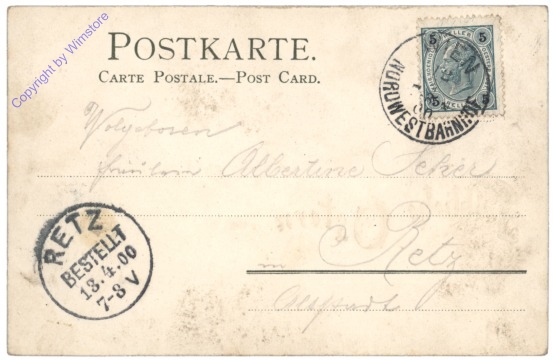 Copyright by Wimstore
POSTKARTE.
CARTE POSTALE.—POST CARD.
5 5
HELLER
5 5
WIEN
NORDWESTBAHNHOF
Wolgeboren
Fräulein Albertine
Retz
in
Altstadt
RETZ
BESTELLT
13.4.00
7-8 V